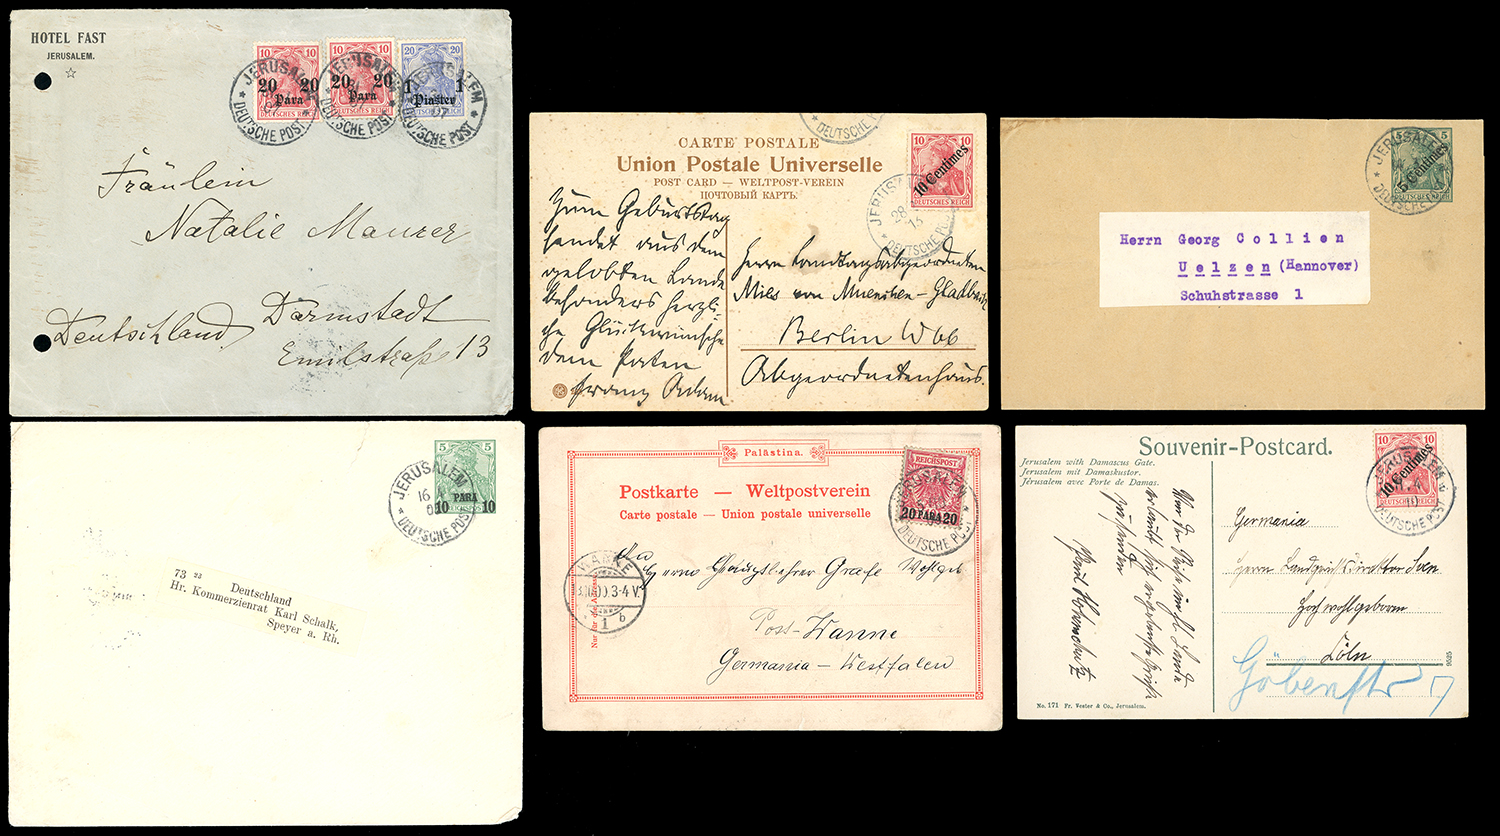 HOTEL FAST
JERUSALEM.
10 10
20 20
Para
DEUTSCHES REICH
10 10
20 20
Para
DEUTSCHES REICH
20 20
1 1
Piaster
DEUTSCHES REICH
JERUSALEM
DEUTSCHE POST
JERUSALEM
DEUTSCHE POST
JERUSALEM
DEUTSCHE POST
Fräulein
Natalie Maurer
Darmstadt
Deutschland
Emilstraße 13
DEUTSCHE
CARTE POSTALE
Union Postale Universelle
POST CARD — WELTPOST-VEREIN
ПОЧТОВЫЙ КАРТЪ
10 10
10 Centimes
DEUTSCHES REICH
JERUSALEM
28
13
DEUTSCHE POST
Zum Geburtstag
sendet aus dem
gelobten Lande
besonders herzli-
che Glückwünsche
dem Paten
Franz Adam
Herrn Landtagsabgeordneten
Mies von Muenchen-Gladbach
Berlin W 66
Abgeordnetenhaus.
5 5
5 Centimes
JERUSALEM
DEUTSCHE POST
Herrn Georg Collien
Uelzen (Hannover)
Schuhstrasse 1
5 5
10 PARA 10
JERUSALEM
16
DEUTSCHE POST
73 23 Deutschland
Hr. Kommerzienrat Karl Schalk,
Speyer a. Rh.
Palästina.
Postkarte — Weltpostverein
Carte postale — Union postale universelle
REICHSPOST
20 PARA 20
JERUSALEM
DEUTSCHE POST
An
Herrn Hauptlehrer Grafe Wohlgeb
Post-Wanne
Germania — Westfalen
WANNE
3-4 V.
1 b
Nur für die
Souvenir-Postcard.
Jerusalem with Damascus Gate.
Jerusalem mit Damaskustor.
Jérusalem avec Porte de Damas.
10 10
10 Centimes
DEUTSCHES REICH
JERUSALEM
DEUTSCHE POST
Germania
Herrn Landgerichtsdirektor
Hochwohlgeboren
Cöln
Göbenstr 7
9525
No. 171 Fr. Vester & Co., Jerusalem.